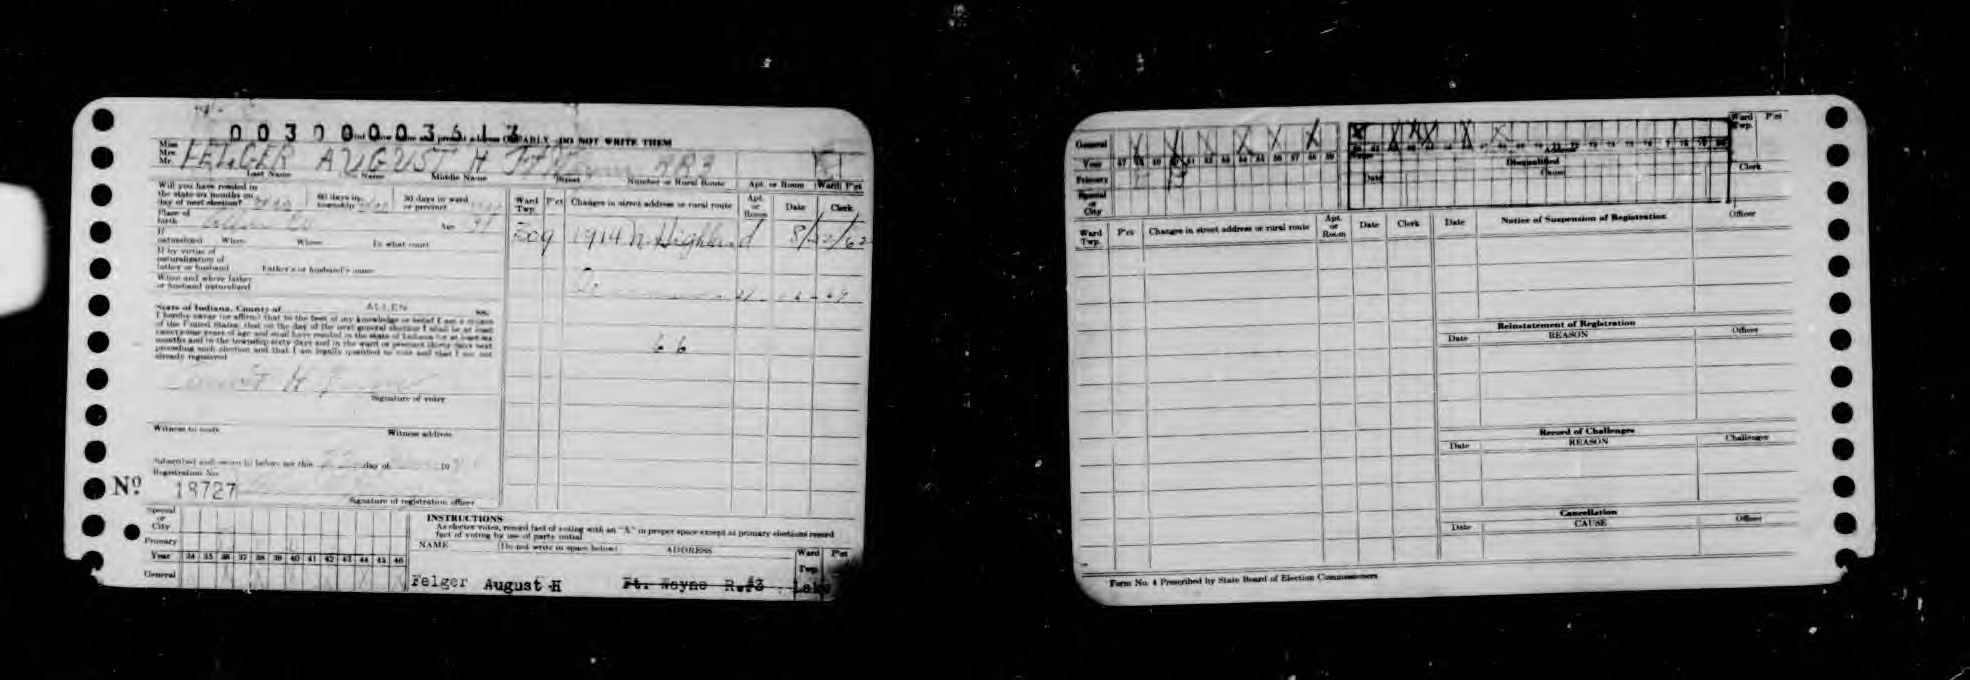 00300003613
CLEARLY DO NOT WRITE THEM
Miss
Mrs.
Mr.
FELGER AUGUST H Ft Wayne RR3
Last Name Name Middle Name Street Number or Rural Route Apt. or Room Ward P'ct
Will you have resided in
the state six months on
day of next election? 60 days in
township 30 days in ward
or precinct
Place of
birth Allen Co Age
If
naturalized When Where In what court
If by virtue of
naturalization of
father or husband Father's or husband's name
When and where father
or husband naturalized
State of Indiana, County of ALLEN SS:
I hereby swear (or affirm) that to the best of my knowledge or belief I am a citizen
of the United States; that on the day of the next general election I shall be at least
twenty-one years of age and shall have resided in the state of Indiana for at least six
months and in the township sixty days and in the ward or precinct thirty days next
preceding such election and that I am legally qualified to vote and that I am not
already registered
August H Felger
Signature of voter
Witness to mark Witness address
Subscribed and sworn to before me this 22 day of 19
Registration No.
Nº 19727
Signature of registration officer
Ward
Twp. P'ct Changes in street address or rural route Apt.
or
Room Date Clerk
209 1914 N. Highland 8/22/62
66
Special
or
City
Primary
Year 34 35 36 37 38 39 40 41 42 43 44 45 46
General
INSTRUCTIONS
As elector votes, record fact of voting with an "X" in proper space except at primary elections record
fact of voting by use of party initial
NAME (Do not write in space below) ADDRESS Ward
Twp. P'ct
Felger August H Ft. Wayne R.#3 Lake
General
Year 47 48 49 50 51 52 53 54 55 56 57 58 59
Primary
Special
or
City
Disqualified
Date Cause
Ward
Twp. P'ct
Clerk
Ward
Twp. P'ct Changes in street address or rural route Apt.
or
Room Date Clerk
Date Notice of Suspension of Registration Officer
Reinstatement of Registration
Date REASON Officer
Record of Challenges
Date REASON Challenger
Cancellation
Date CAUSE Officer
Form No. 4 Prescribed by State Board of Election Commissioners